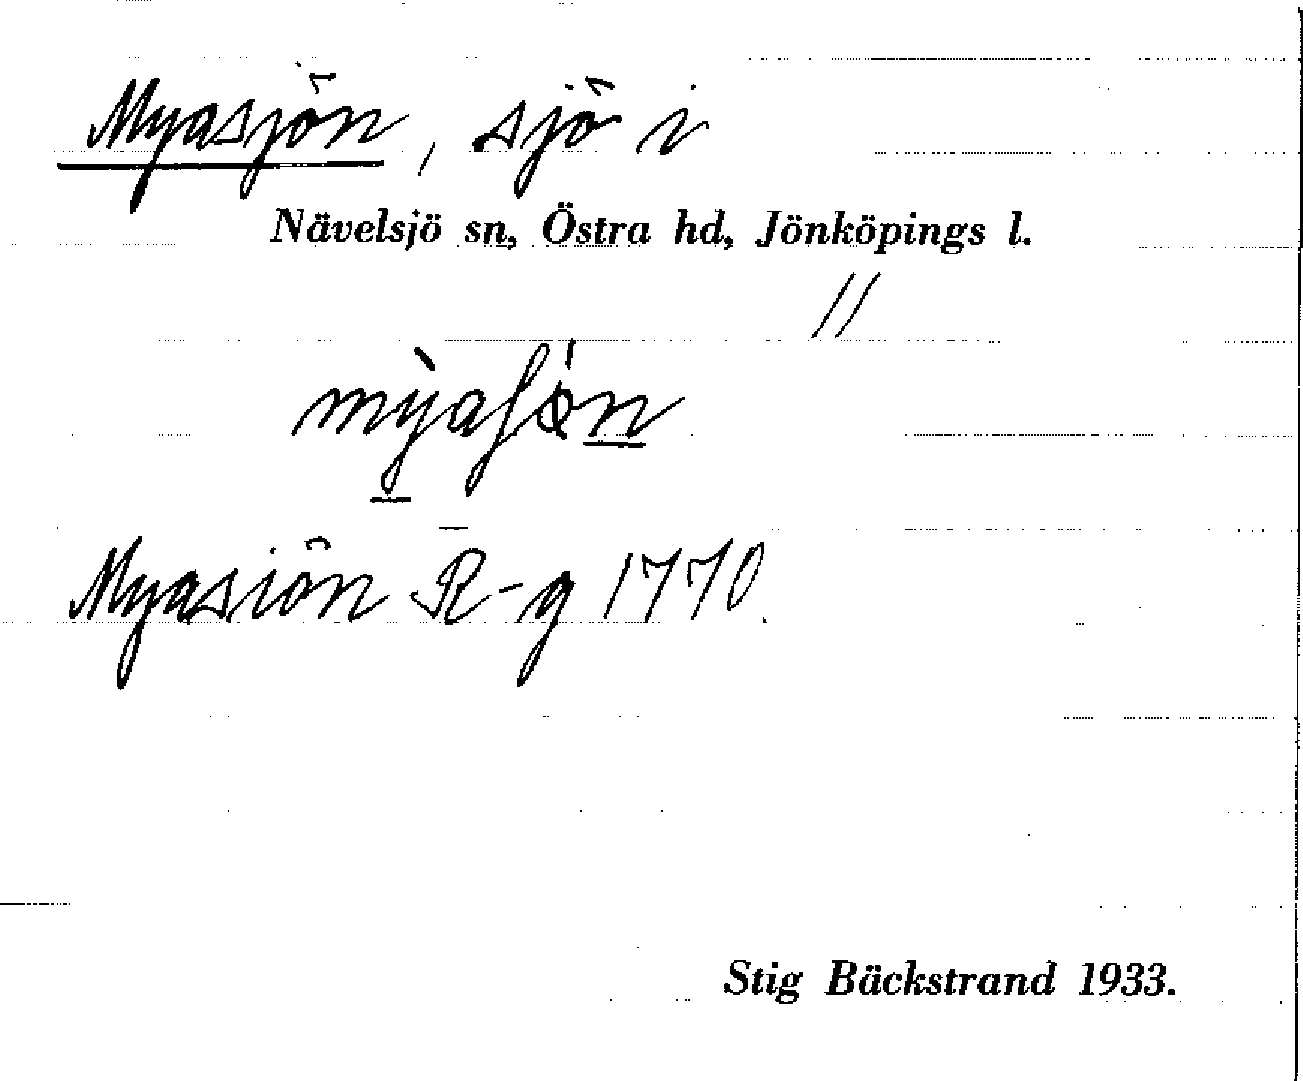 Myasjön, sjö i
Nävelsjö sn, Östra hd, Jönköpings l.
//
mỳaʃǿn
Myasiön R-g 1770.
Stig Bäckstrand 1933.